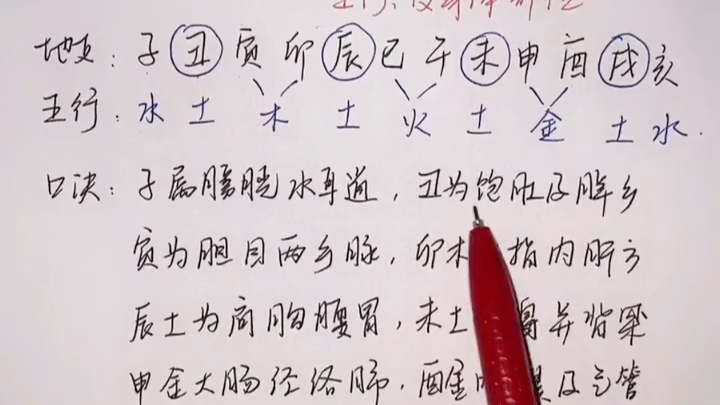 地支：子丑寅卯辰巳午未申酉戌亥
五行：水 土 木 土 火 土 金 土 水
口决：子属膀胱水耳道，丑为胞肚及脾乡
寅为胆目两乡脉，卯木 指内肝方
辰土为肩胸腰胃，未土 并背梁
申金大肠经络肺，酉金 及气管